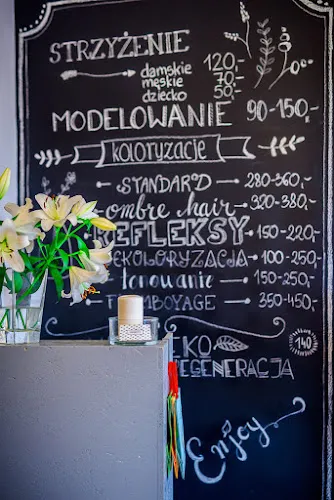 STRZYŻENIE
damskie 120,-
męskie 70,-
dziecko 50,-
MODELOWANIE 90-150,-
koloryzacje
STANDARD 280-360,-
ombre hair 320-380,-
REFLEKSY 150-220,-
DEKOLORYZACJA 100-250,-
tonowanie 150-250,-
FLAMBOYAGE 350-450,-
EKO
REGENERACJA 140
Enjoy